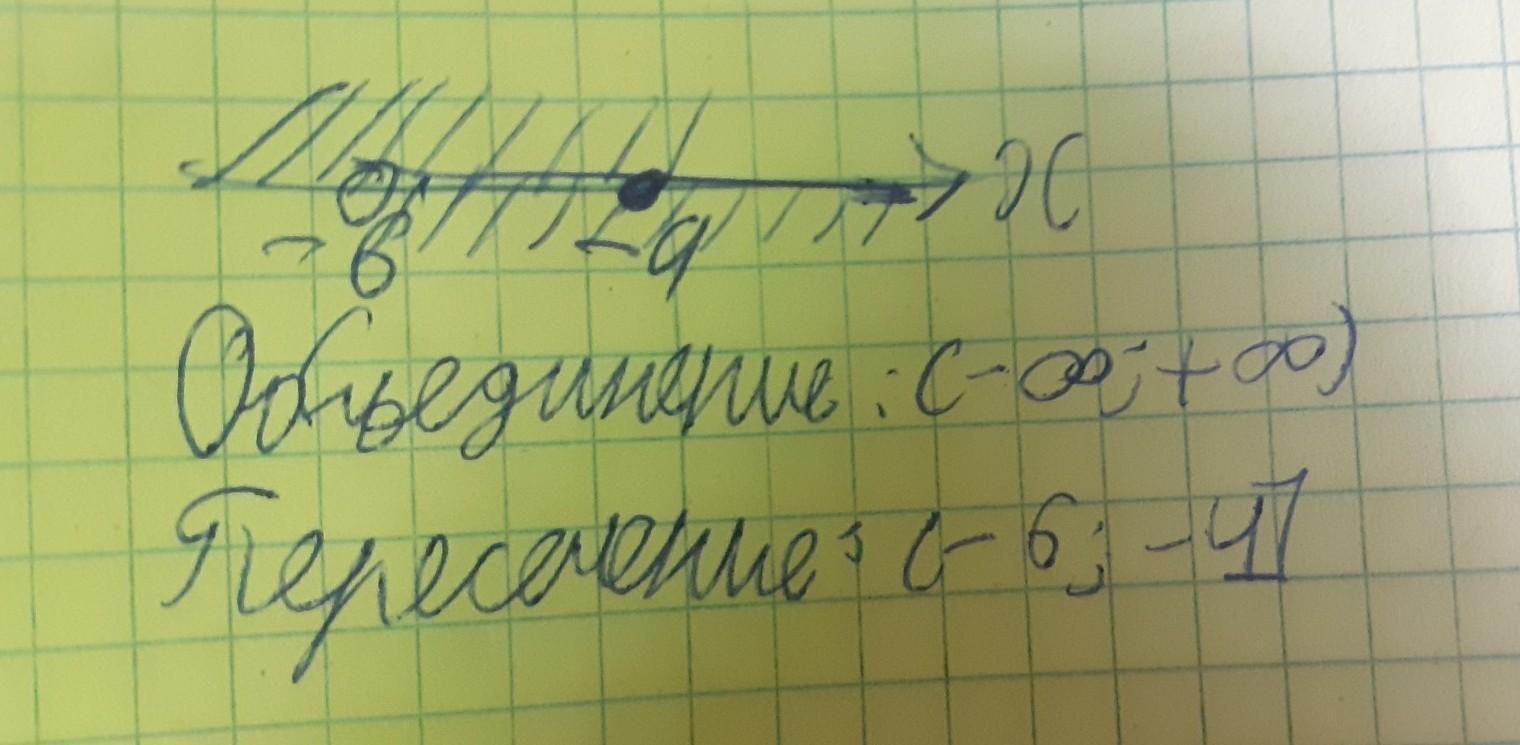 x
-6 -4
Объединение: (-∞; +∞)
Пересечение: (-6; -4]